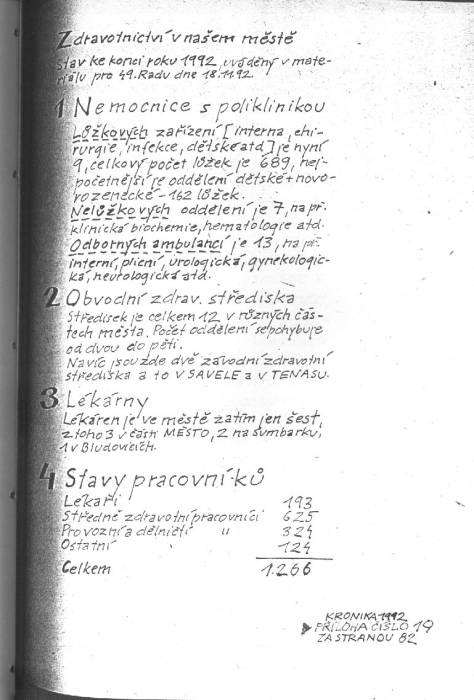 Zdravotnictví v našem městě
stav ke konci roku 1992, uváděný v mate-
riálu pro 49. Radu dne 18.11.92.
1 Nemocnice s poliklinikou
Lůžkových zařízení [interna, chi-
rurgie, infekce, dětské atd] je nyní
9, celkový počet lůžek je 689, nej-
početnější je oddělení dětské + novo-
rozenecké - 162 lůžek.
Nelůžkových oddělení je 7, např.
klinická biochemie, hematologie atd.
Odborných ambulancí je 13, na př.
interní, plicní, urologická, gynekologic-
ká, neurologická atd.
2 Obvodní zdrav. střediska
Středisek je celkem 12 v různých čás-
tech města. Počet oddělení se pohybuje
od dvou do pěti.
Navíc jsou zde dvě závodní zdravotní
střediska a to v SAVELE a v TENASU.
3 Lékárny
Lékáren je ve městě zatím jen šest,
z toho 3 v části MĚSTO, 2 na Šumbarku,
1 v Bludovicích.
4 Stavy pracovníků
Lékaři 193
Středně zdravotní pracovníci 625
Provozní a dělničtí " 324
Ostatní 124
Celkem 1.266
KRONIKA 1992
PŘÍLOHA ČÍSLO 19
ZA STRANOU 82